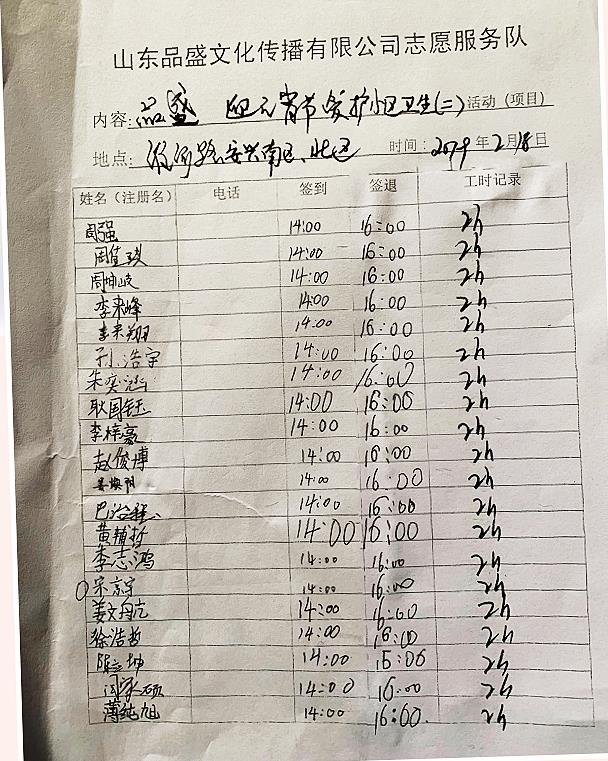 山东品盛文化传播有限公司志愿服务队
内容:品盛 迎元宵节爱护小区卫生(二)活动(项目)
地点: 安兴南区、北区 时间:2019年2月18日
姓名(注册名) 电话 签到 签退 工时记录
周强 14:00 16:00 2h
周佳 14:00 16:00 2h
周坤岐 14:00 16:00 2h
李来峰 14:00 16:00 2h
李来翔 14:00 16:00 2h
孙浩宇 14:00 16:00 2h
朱奕涵 14:00 16:00 2h
耿国钰 14:00 16:00 2h
李梓豪 14:00 16:00 2h
赵俊博 14:00 16:00 2h
14:00 16:00 2h
巴治 14:00 16:00 2h
黄辅哲 14:00 16:00 2h
季志鸿 14:00 16:00 2h
宋京宇 14:00 16:00 2h
姜文 14:00 16:00 2h
徐浩哲 14:00 16:00 2h
陈 坤 14:00 16:00 2h
闫家硕 14:00 16:00 2h
薄纯旭 14:00 16:00 2h